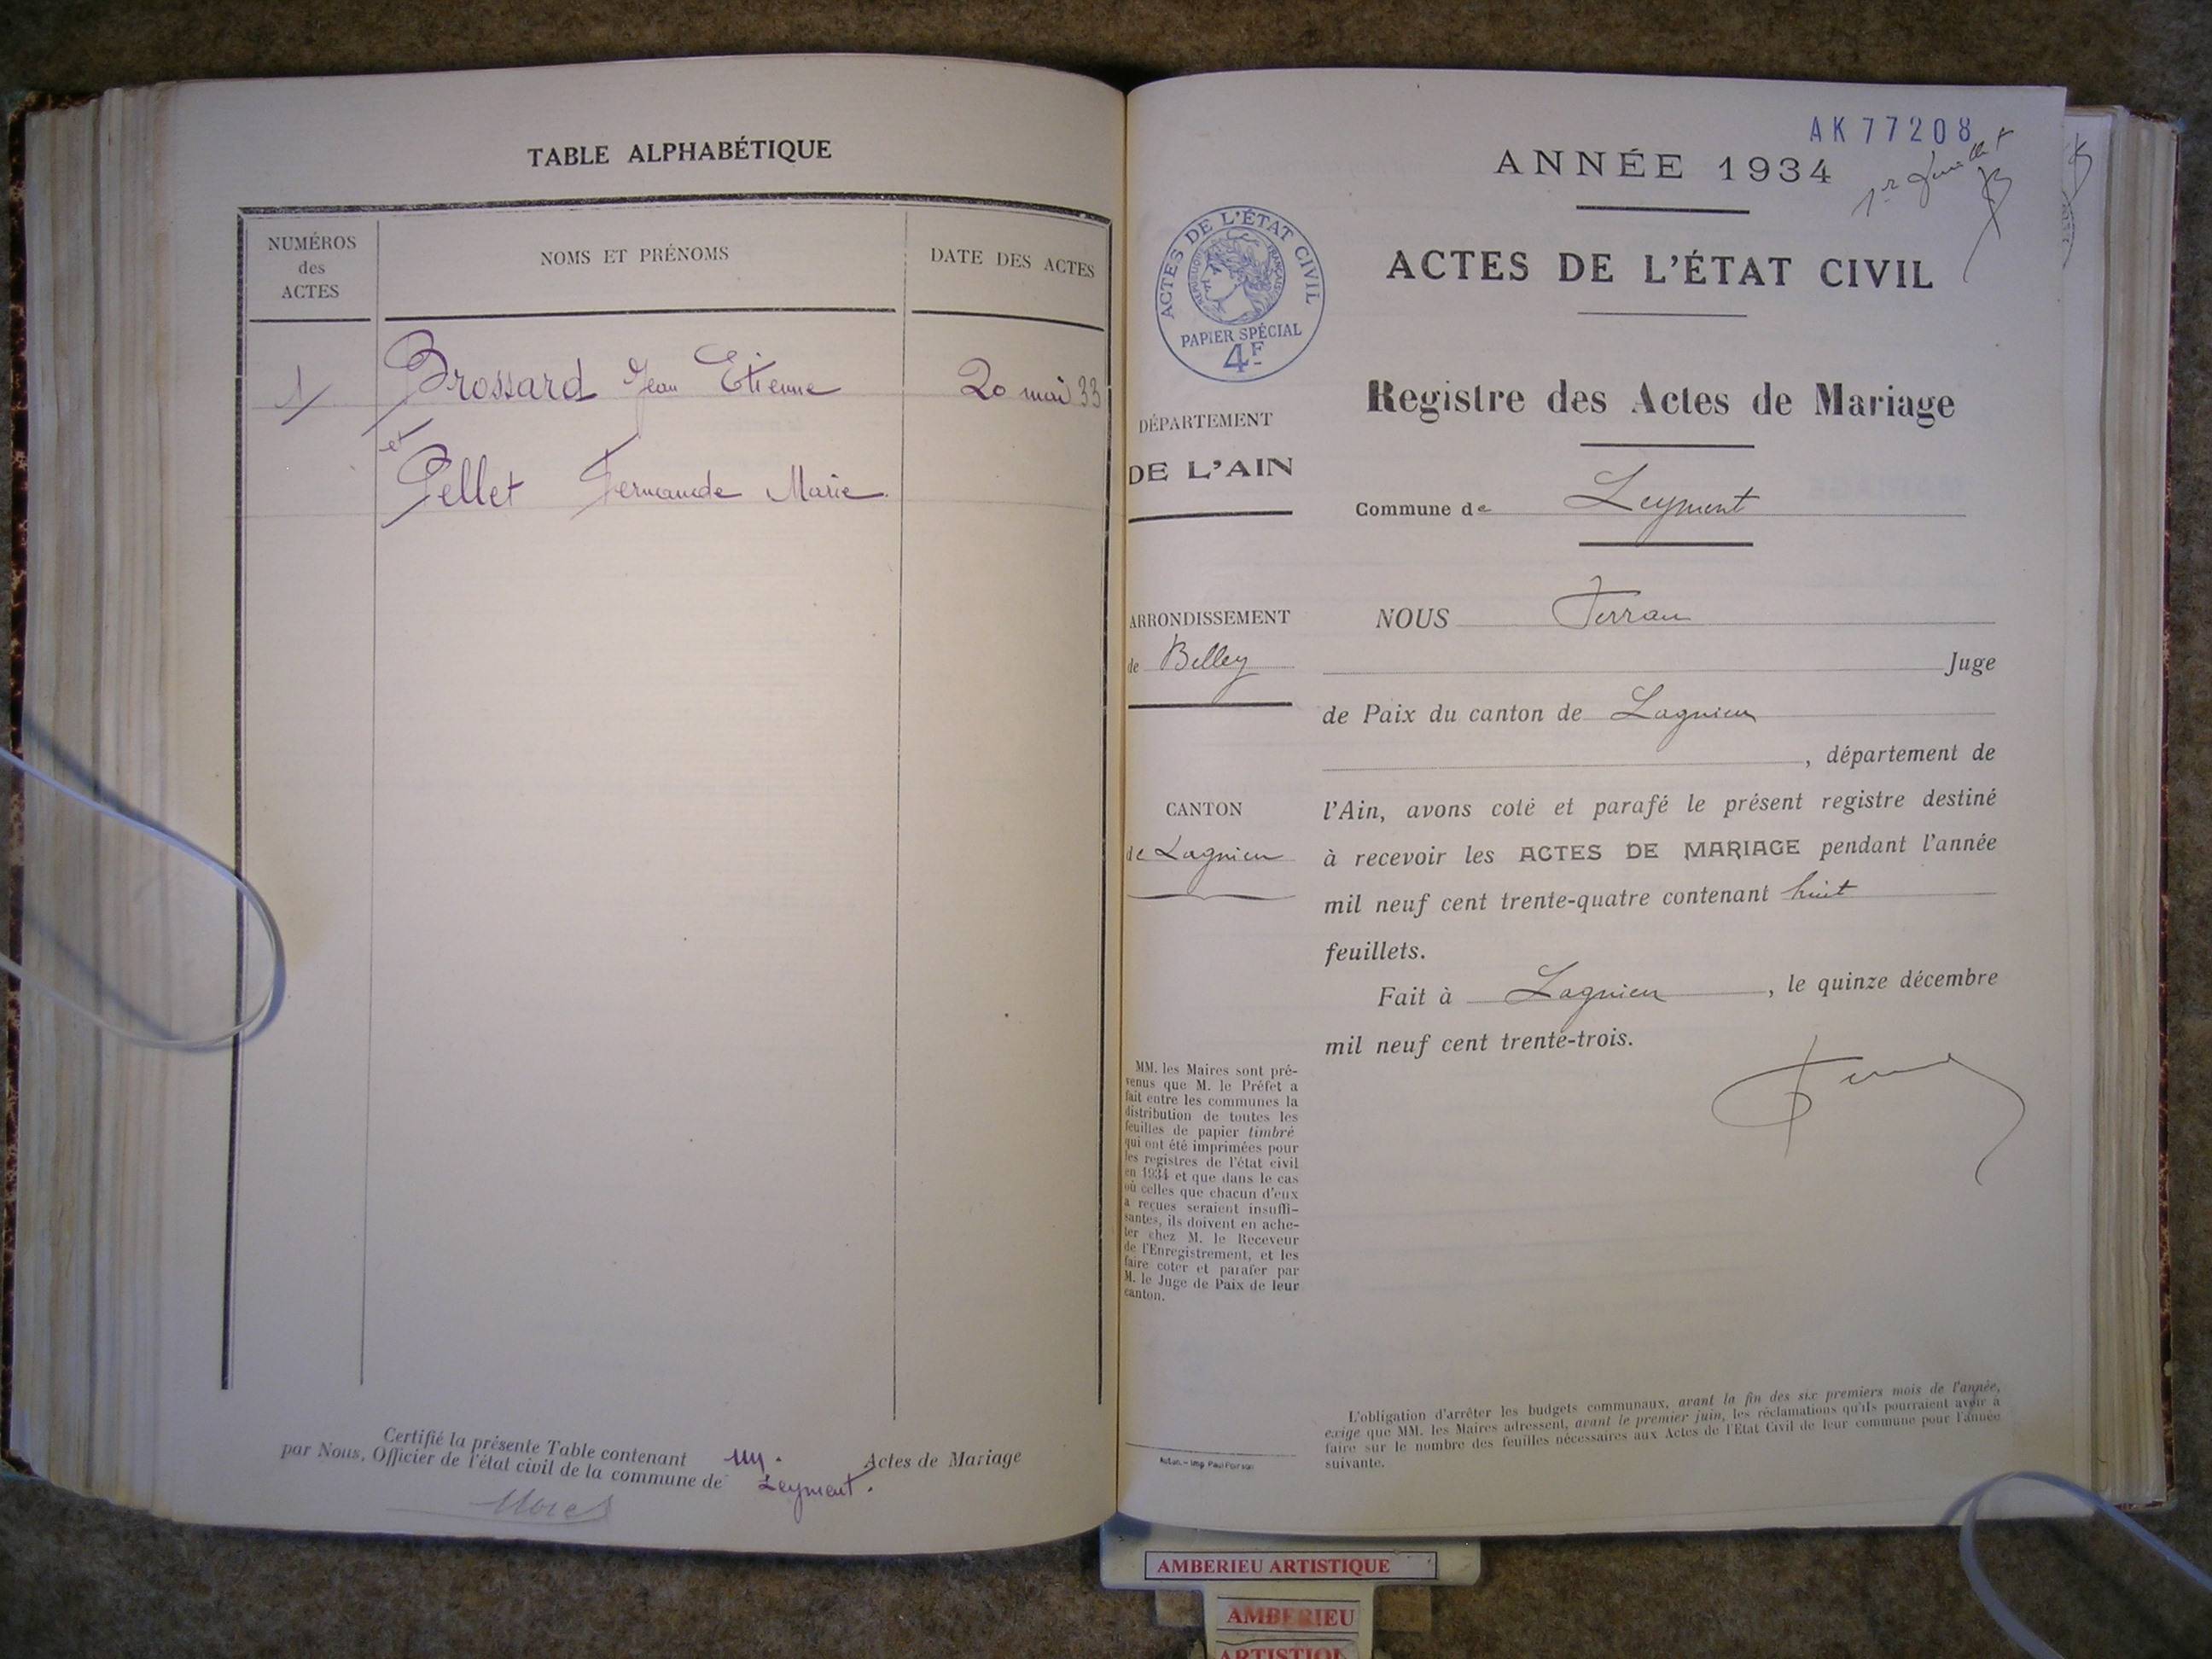 TABLE ALPHABÉTIQUE
NUMÉROS
des
ACTES
NOMS ET PRÉNOMS
DATE DES ACTES
1 Brossard Jean Etienne 20 mai 33
et
Pellet Fernande Marie
Certifié la présente Table contenant un. Actes de Mariage
par Nous, Officier de l'état civil de la commune de Leyment.
AK 77208
1er feuillet
ANNÉE 1934
ACTES DE L'ÉTAT CIVIL
RÉPUBLIQUE FRANÇAISE
PAPIER SPÉCIAL
4F
ACTES DE L'ÉTAT CIVIL
Registre des Actes de Mariage
DÉPARTEMENT
DE L'AIN
Commune de Leyment
ARRONDISSEMENT
de Belley
CANTON
de Lagnieu
NOUS Ferran
Juge
de Paix du canton de Lagnieu
, département de
l'Ain, avons coté et parafé le présent registre destiné
à recevoir les ACTES DE MARIAGE pendant l'année
mil neuf cent trente-quatre contenant huit
feuillets.
Fait à Lagnieu, le quinze décembre
mil neuf cent trente-trois.
MM. les Maires sont pré-
venus que M. le Préfet a
fait entre les communes la
distribution de toutes les
feuilles de papier timbré
qui ont été imprimées pour
les registres de l'état civil
en 1934 et que dans le cas
où celles que chacun d'eux
a reçues seraient insuffi-
santes, ils doivent en ache-
ter chez M. le Receveur
de l'Enregistrement, et les
faire coter et parafer par
M. le Juge de Paix de leur
canton.
L'obligation d'arrêter les budgets communaux, avant la fin des six premiers mois de l'année,
exige que MM. les Maires adressent, avant le premier juin, les réclamations qu'ils pourraient avoir à
faire sur le nombre des feuilles nécessaires aux Actes de l'Etat Civil de leur commune pour l'année
suivante.
AMBERIEU ARTISTIQUE
AMBERIEU